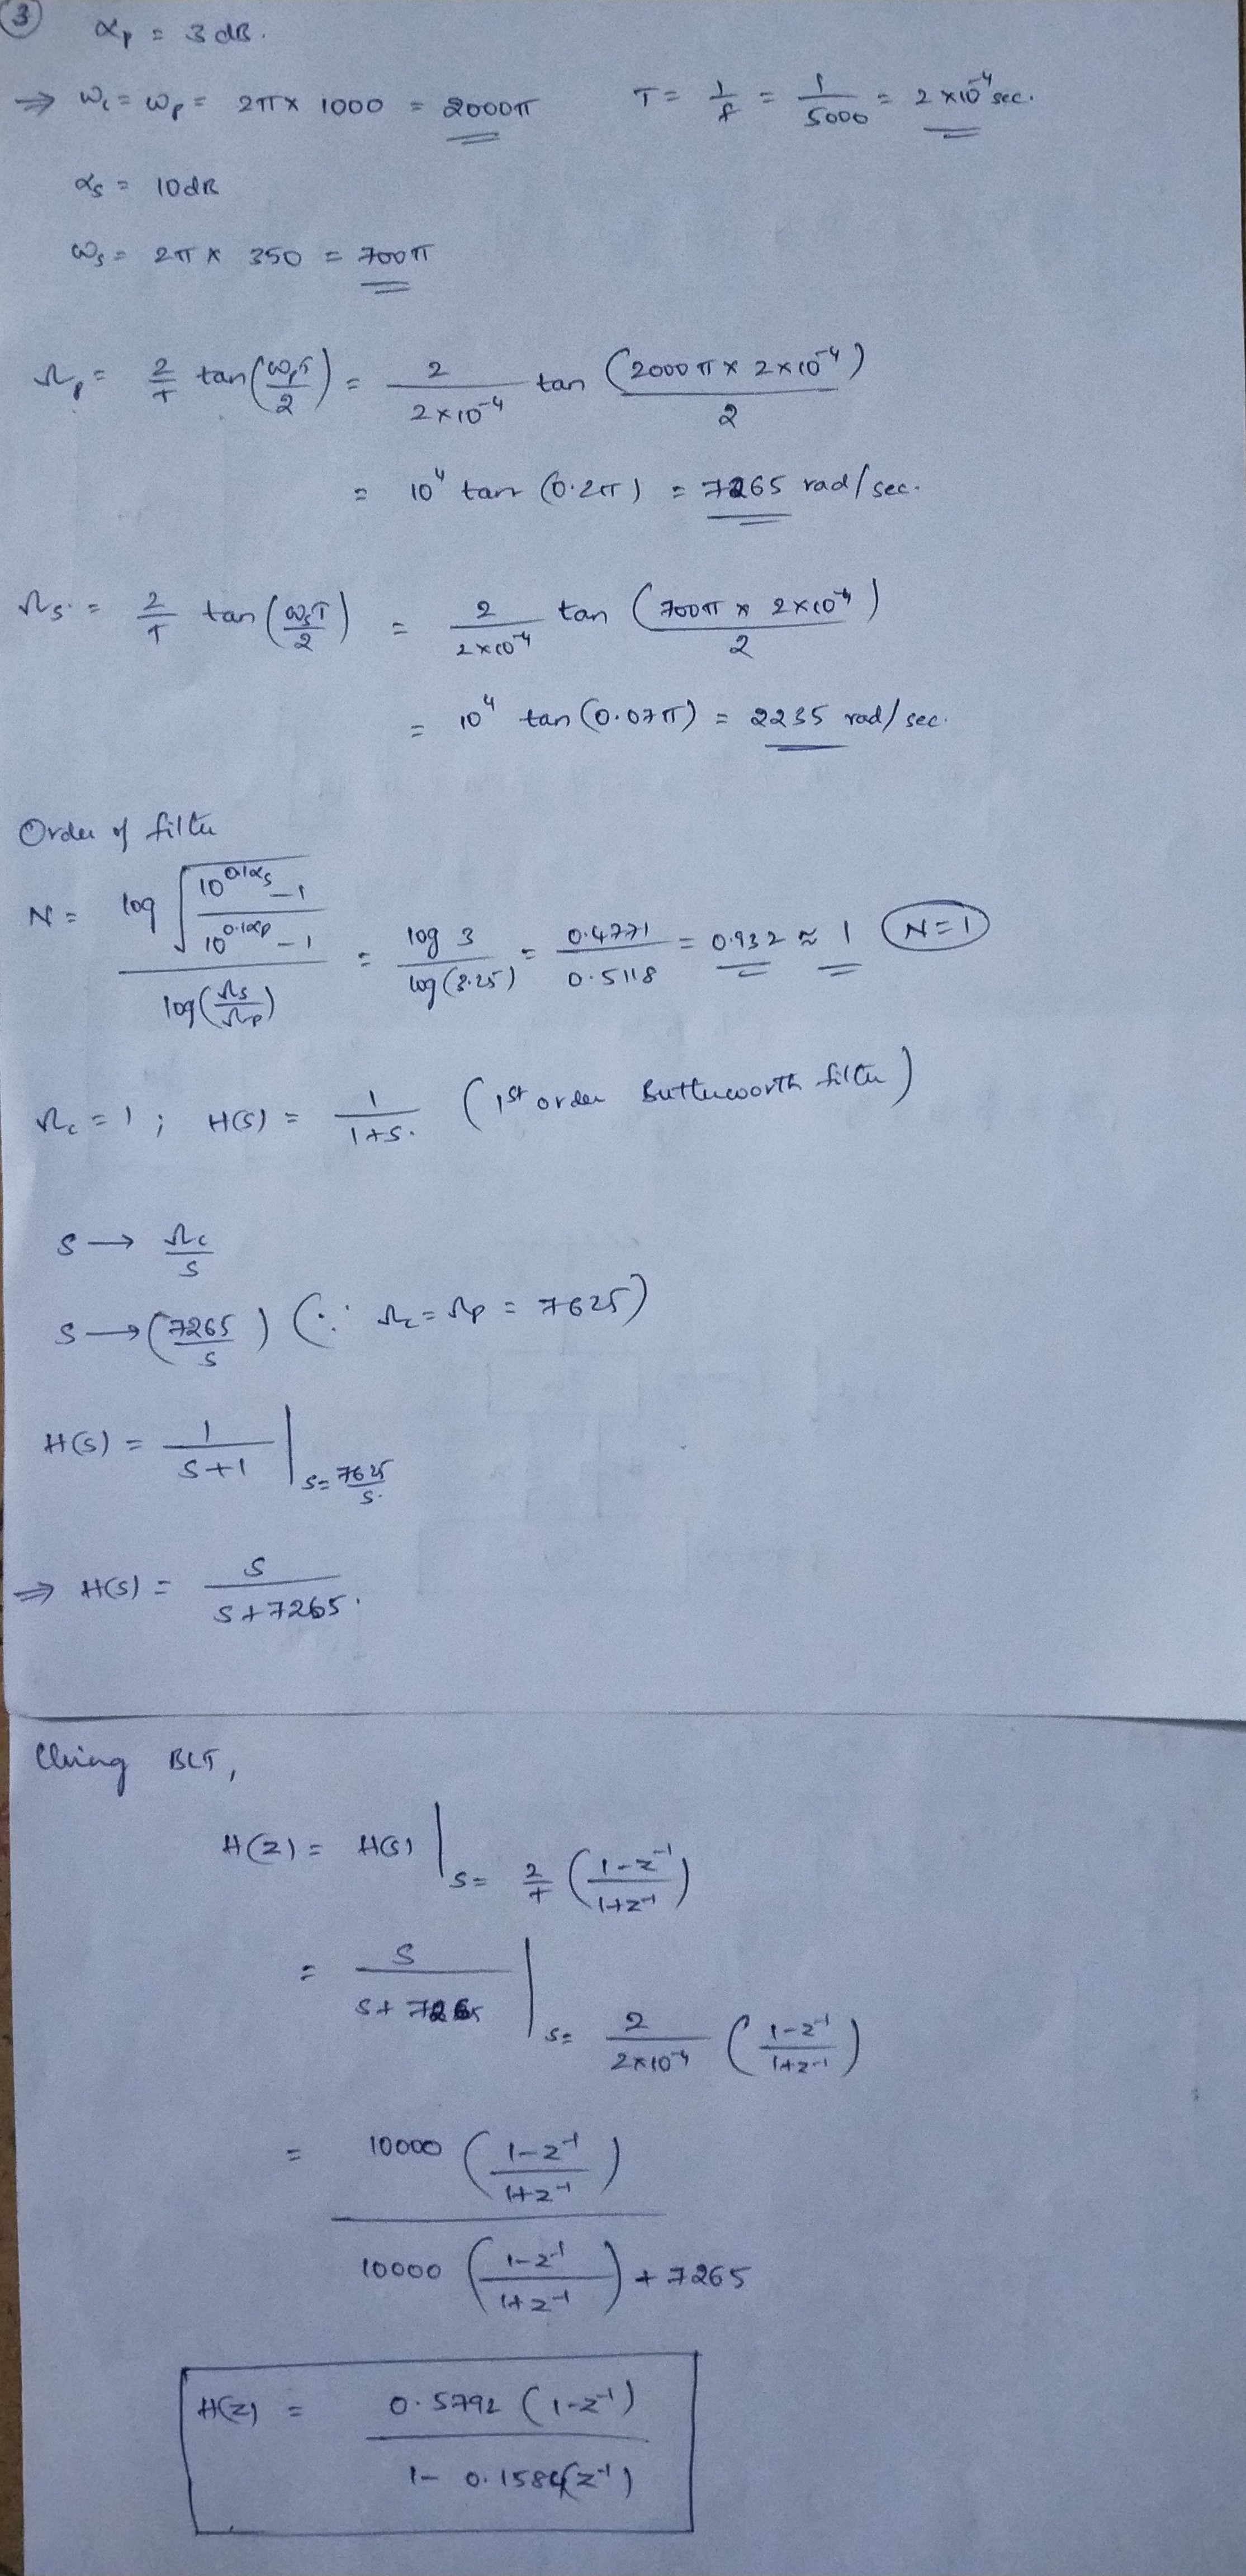 ③ αp = 3 dB.
⇒ ωc = ωp = 2π × 1000 = 2000π T = 1/f = 1/5000 = 2 × 10⁻⁴ sec.
αs = 10 dB
ωs = 2π × 350 = 700π
Ωp = 2/T tan(ωpT/2) = 2/(2 × 10⁻⁴) tan (2000π × 2 × 10⁻⁴)/2
= 10⁴ tan (0.2π) = 7265 rad/sec.
Ωs = 2/T tan(ωsT/2) = 2/(2 × 10⁻⁴) tan (700π × 2 × 10⁻⁴)/2
= 10⁴ tan (0.07π) = 2235 rad/sec.
Order of filter
N = log √((10^0.1αs − 1)/(10^0.1αp − 1)) / log(Ωs/Ωp) = log 3 / log(3.25) = 0.4771/0.5118 = 0.932 ≈ 1 (N=1)
Ωc = 1 ; H(s) = 1/(1+s). (1st order Butterworth filter)
s → Ωc/s
s → (7265/s) (∵ Ωc = Ωp = 7625)
H(s) = 1/(s+1) | s = 7625/s.
⇒ H(s) = s/(s+7265).
Using BLT,
H(z) = H(s) | s = 2/T ((1−z⁻¹)/(1+z⁻¹))
= s/(s+7265) | s = 2/(2×10⁻⁴) ((1−z⁻¹)/(1+z⁻¹))
= 10000 ((1−z⁻¹)/(1+z⁻¹)) / 10000 ((1−z⁻¹)/(1+z⁻¹)) + 7265
H(z) = 0.5792 (1−z⁻¹) / 1 − 0.1584(z⁻¹)